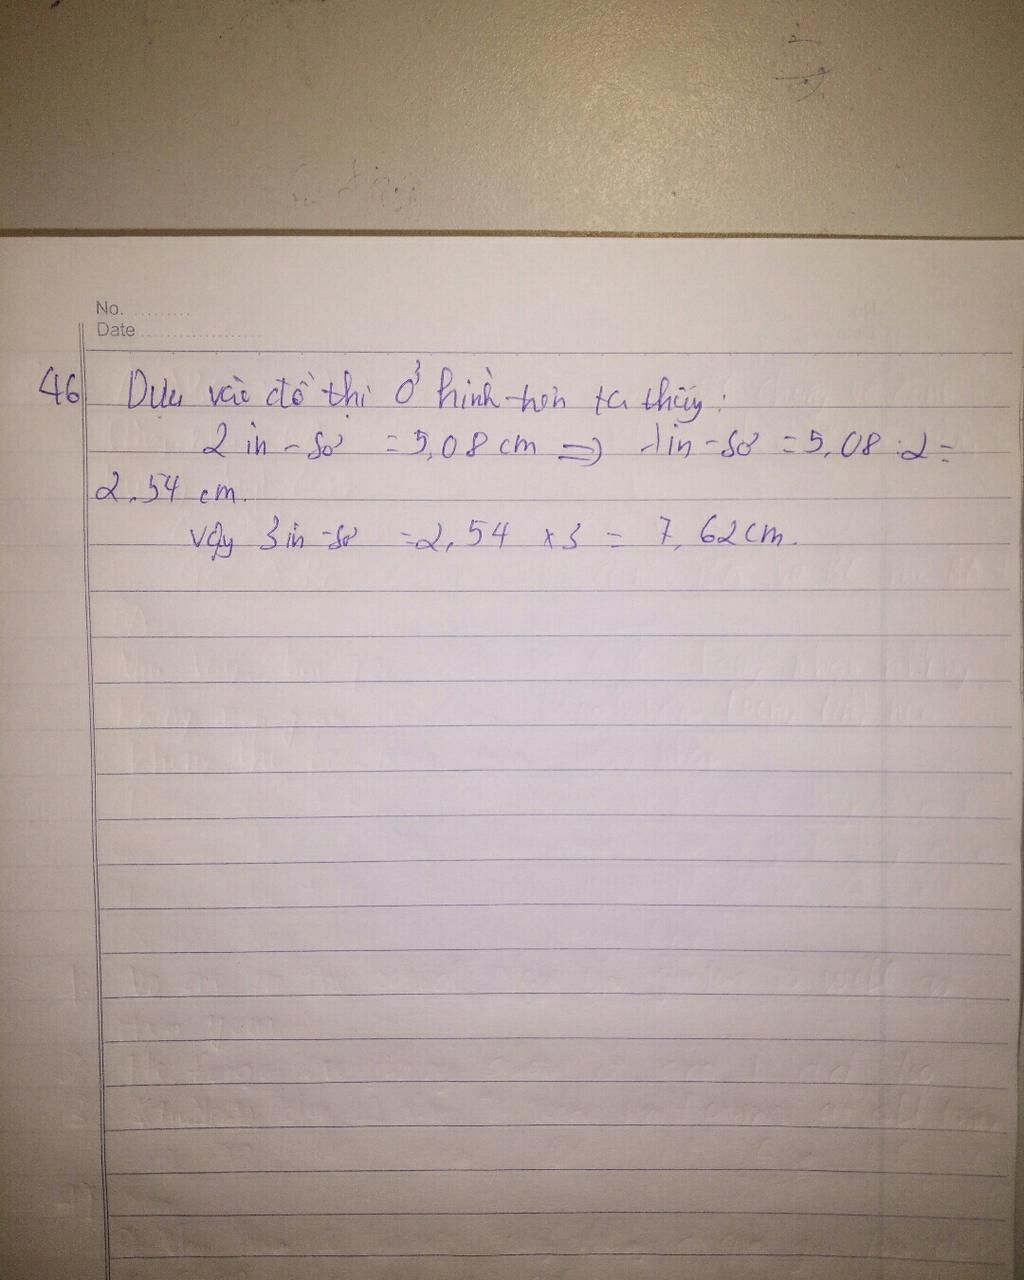 No. .........
Date ....................
46 Dựa vào đồ thị ở hình trên ta thấy:
2 in-sơ = 5,08 cm => 1in-sơ = 5,08 :2=
2,54 cm.
vậy 3in-sơ =2,54 x3 = 7,62cm.